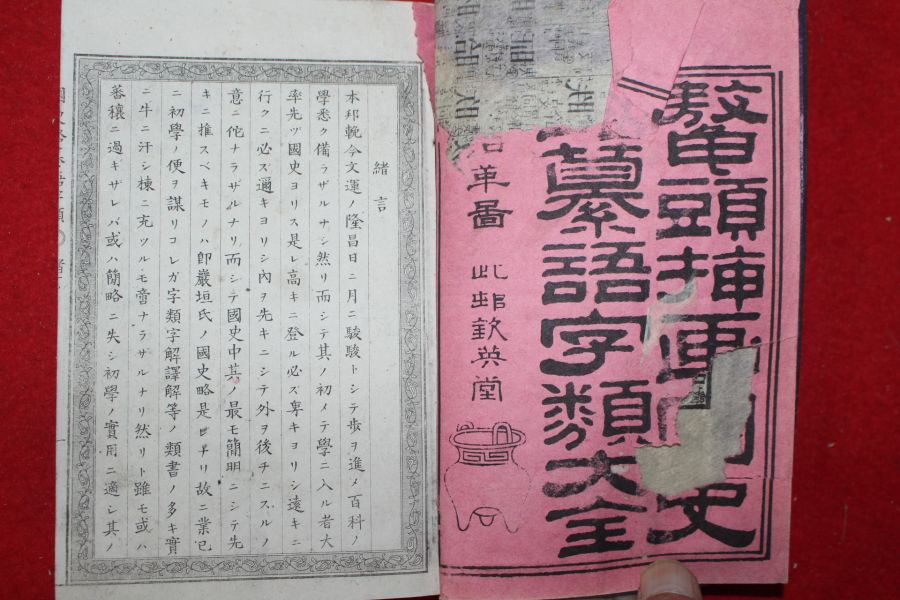 鼇頭挿画国史
纂語字類大全
沿革圖
此邨欽英堂
緒言
本邦輓今文運ノ隆昌日ニ月ニ駿駿トシテ歩ヲ進メ百科ノ
學悉ク備ラザルナシ然リ而シテ其ノ初メテ學ニ入ル者大
率先ヅ國史ヨリス是レ高キニ登ル必ズ卑キヨリシ遠キニ
行クニ必ズ邇キヨリシ内ヲ先キニシテ外ヲ後チニスルノ
意ニ佗ナラザルナリ而シテ國史中其ノ最モ簡明ニシテ先
キニ推スベキモノハ即巖垣氏ノ國史略是レナリ故ニ業已
ニ初學ノ便ヲ謀リコレガ字類字解譯解等ノ類書ノ多キ實
ニ牛ニ汗シ棟ニ充ツルモ啻ナラザルナリ然リト雖モ或ハ
蕃穰ニ過ギザレバ或ハ簡略ニ失シ初學ノ實用ニ適シ其ノ